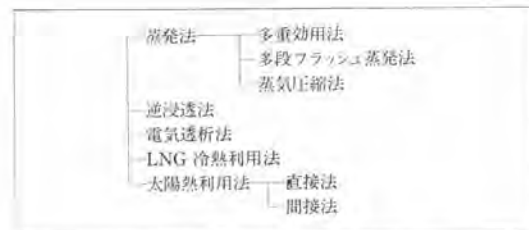 蒸発法 多重効用法
多段フラッシュ蒸発法
蒸気圧縮法
逆浸透法
電気透析法
LNG 冷熱利用法
太陽熱利用法 直接法
間接法